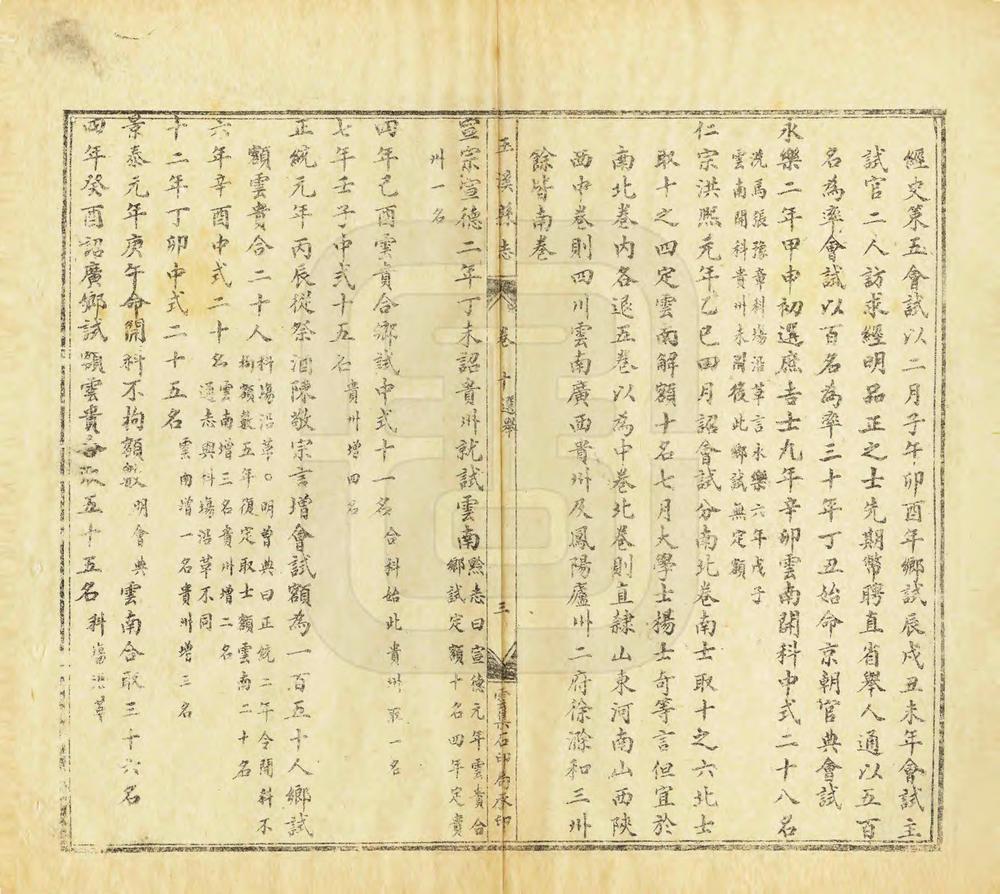 經史策五會試以二月子午卯酉年鄉試辰戌丑未年會試主
試官二人訪求經明品正之士先期幣聘直省舉人通以五百
名為率會試以百名為率三十年丁丑始命京朝官典會試
永樂二年甲申初選庶吉士九年辛卯雲南開科中式二十八名
洗馬張豫章科場沿革言永樂六年戊子
雲南開科貴州未開後此鄉試無定額
仁宗洪熙元年乙巳四月詔會試分南北卷南士取十之六北士
取十之四定雲南解額十名七月大學士楊士奇等言但宜於
南北卷內各退五卷以為中卷北卷則直隸山東河南山西陝
西中卷則四川雲南廣西貴州及鳳陽廬州二府徐滁和三州
餘皆南卷
玉溪縣志 卷十選舉 三 雲集石印局承印
宣宗宣德二年丁未詔貴州就試雲南黔志曰宣德元年雲貴合
鄉試定額十名四年定貴
州一名
四年己酉雲貴合鄉試中式十一名合科始此貴州取一名
七年壬子中式十五名貴州增四名
正統元年丙辰從祭酒陳敬宗言增會試額為一百五十人鄉試
額雲貴合二十人科場沿革○明會典曰正統二年令開科不
拘額數五年復定取士額雲南二十名
六年辛酉中式二十名雲南增三名貴州增二名
通志與科場沿革不同
十二年丁卯中式二十五名雲南增一名貴州增三名
景泰元年庚午命開科不拘額數明會典雲南合取三十六名
四年癸酉詔廣鄉試額雲貴合取五十五名科場沿革